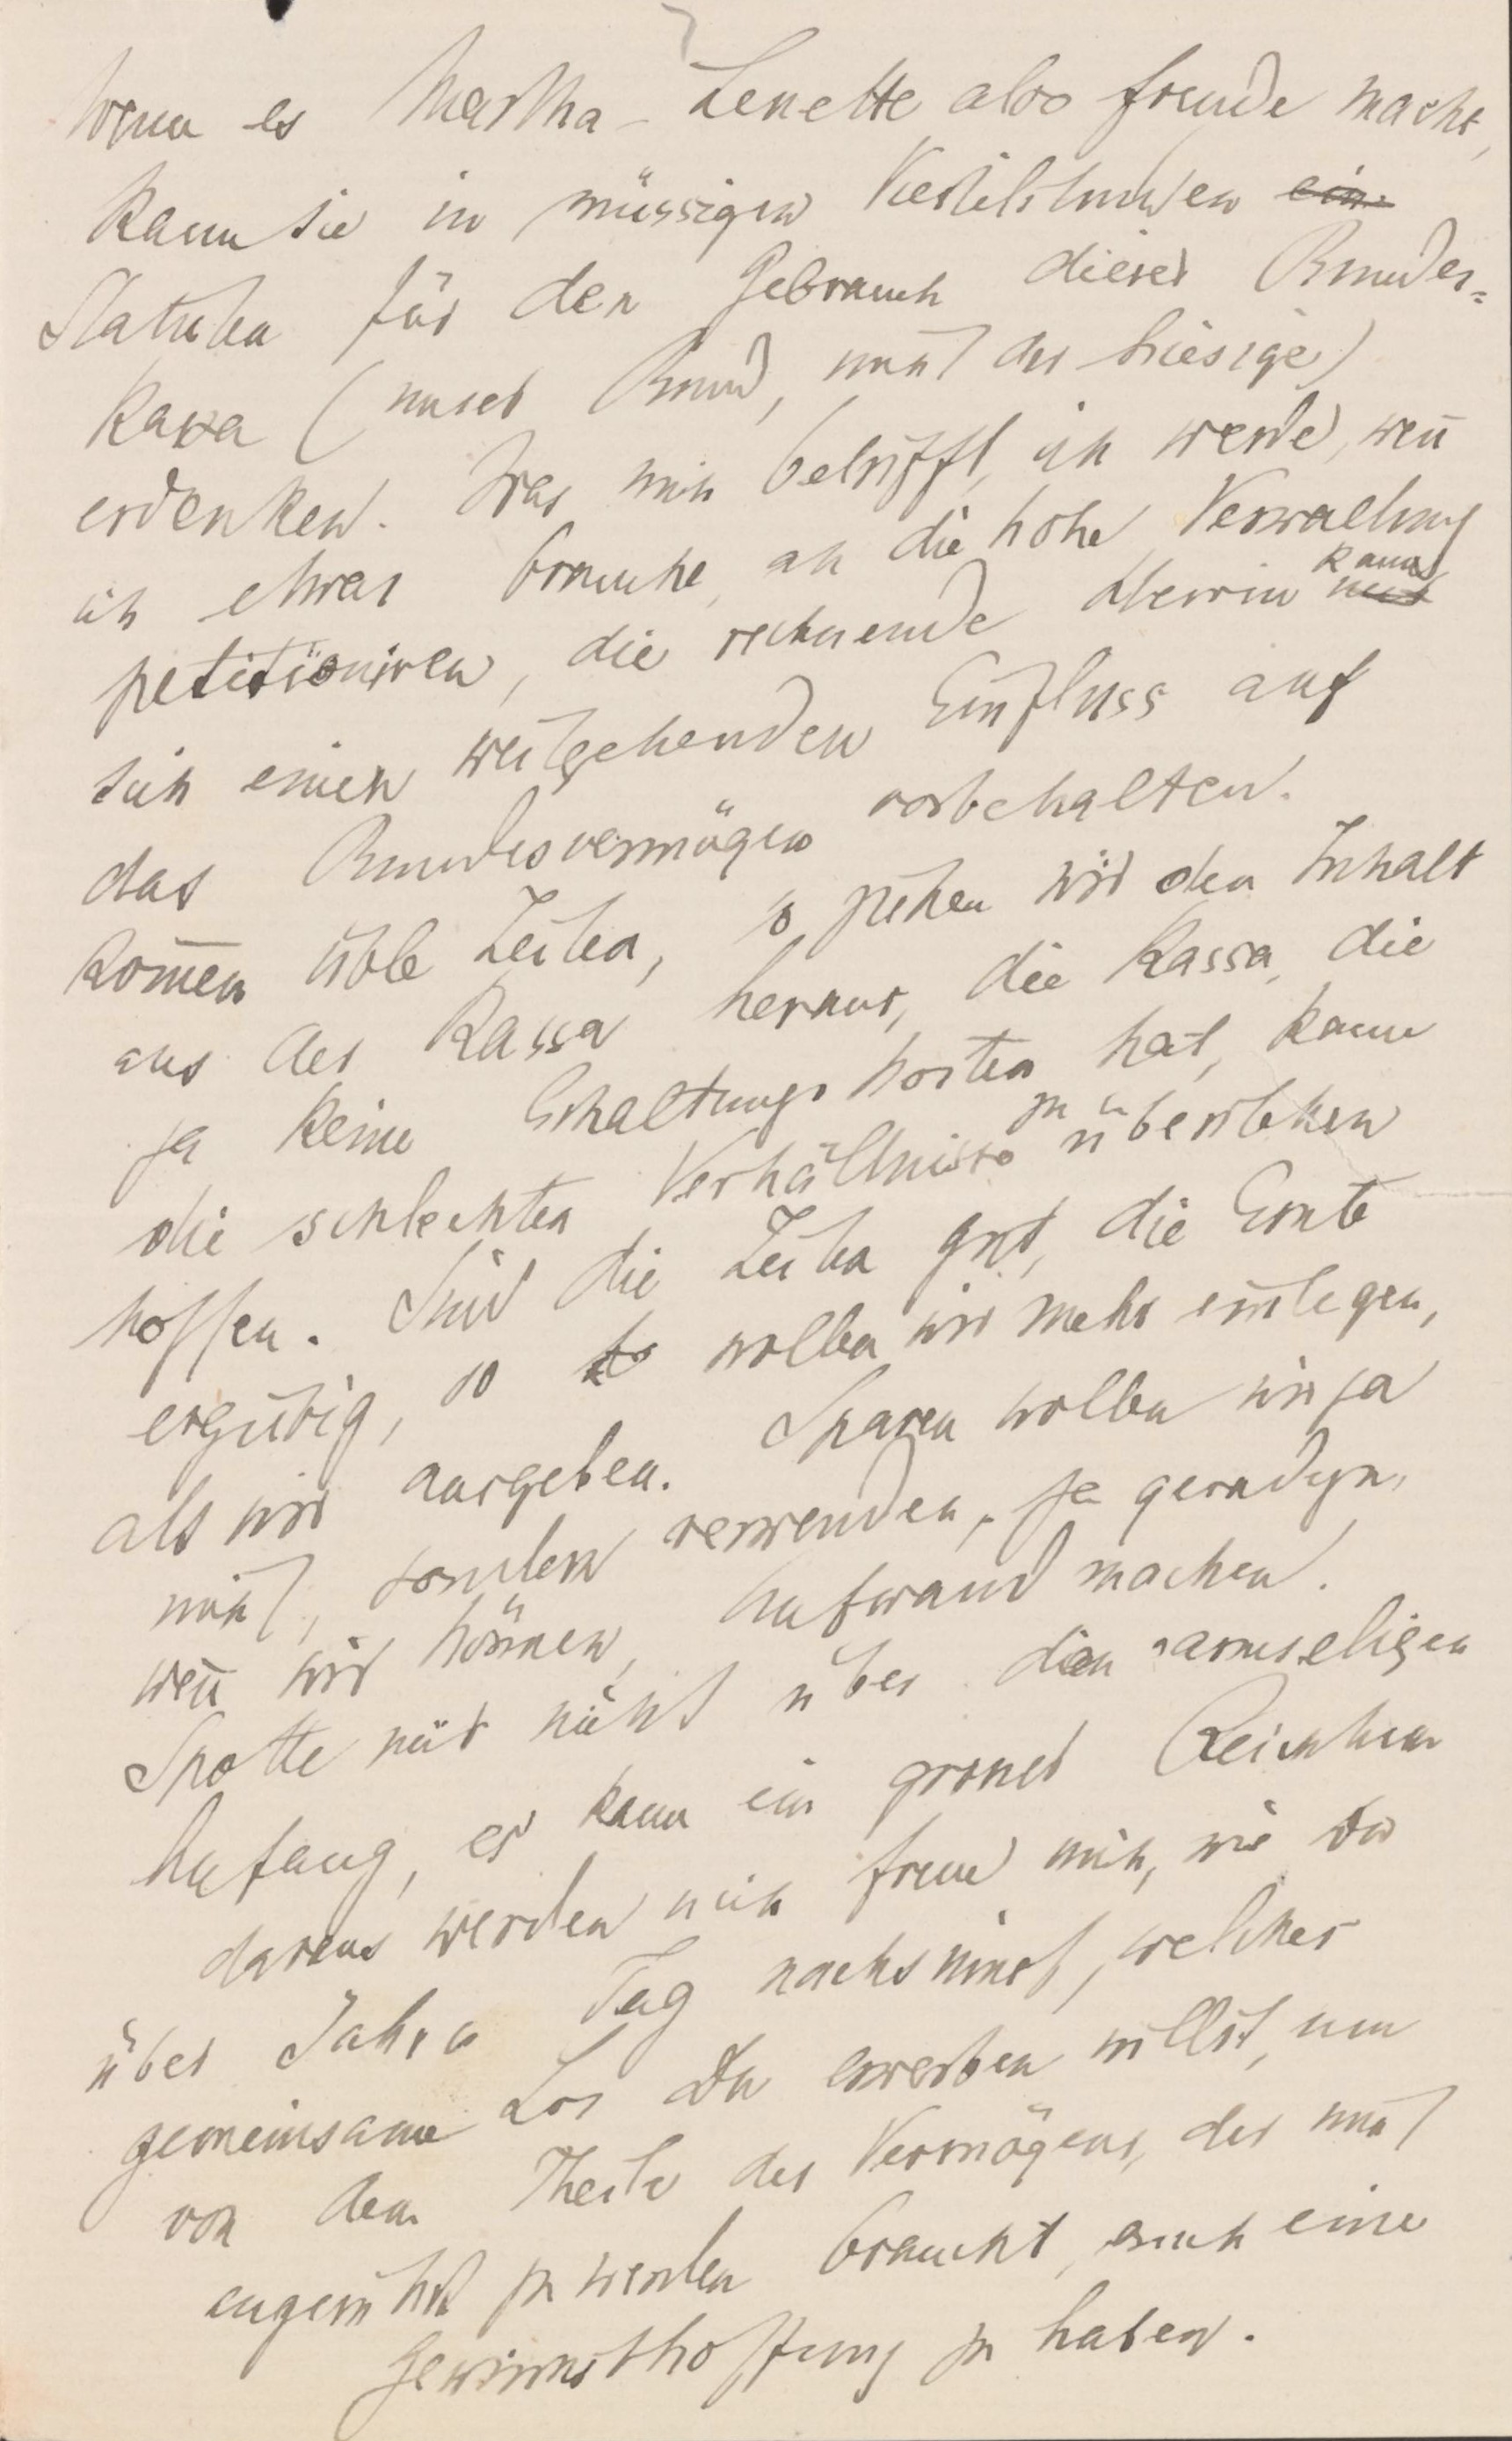 Wenn es Martha-Lenette also Freude macht,
kann sie in müssigen Viertelstunden ein
Statuten für den Gebrauch dieser Bundes=
kassa (unser Bund, nicht der hiesige)
erdenken. Was mich betrifft, ich werde, wen̄
ich etwas brauche, an die hohe Verwaltung
petitioniren, die rechnende Herrin kann
sich einen weitgehenden Einfluss auf
das Bundesvermögen vorbehalten.
Kom̄en üble Zeiten, so ziehen wir den Inhalt
aus der Kassa heraus, die Kassa, die
ja keine Erhaltungskosten hat, kann
die schlechten Verhältnisse zu überstehen
hoffen. Sind die Zeiten gut, die Ernte
ergiebig, so wollen wir mehr einlegen,
als wir ausgeben. Sparen wollen wir ja
nicht, sondern verwenden, ja geradezu,
wen̄ wir können, Aufwand machen.
Spotte mir nicht über den armseligen
Anfang, es kann ein grosser Reichthum
daraus werden u ich freue mich, wie Du
über Jahr u Tag nachsinnst, welches
gemeinsame Los Du erwerben willst, um
von dem Theile des Vermögens, der nicht
angerührt zu werden braucht, auch eine
Gewinnsthoffnung zu haben.